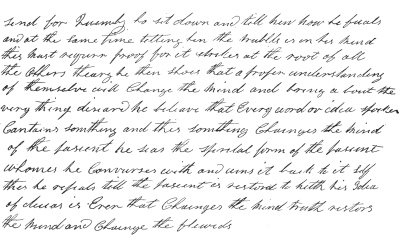 send for Quimby he sit down and tell him how he feals
and at the same time telling him the trubble is in his mind
this must requir proof for it strikes at the root of all
the others theary he then shows that a proper understanding
of themselve will Change the mind and bring a bout the
very thing disiard he beliave that Every word or idia spoken
Contains somthing and this somthing Chainges the mind
of the pasient he seas the spirital form of the pasient
whomes he Convurses with and it back to it self
this he repeats till the pasient is restord to helth his Idia
of is Eror that Chainges the mind truth restors
the mind and Chainge the fluwids